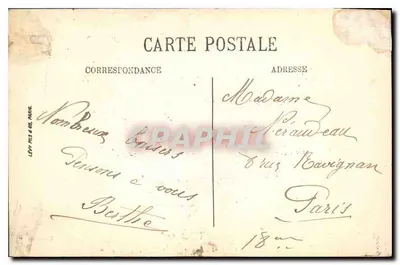 CARTE POSTALE
CORRESPONDANCE
ADRESSE
LÉVY FILS & CIE, PARIS.
Nombreux baisers
Pensons à vous
Berthe
Madame
Néraudeau
8 rue Ravignan
Paris
18eme
CPAPHIL